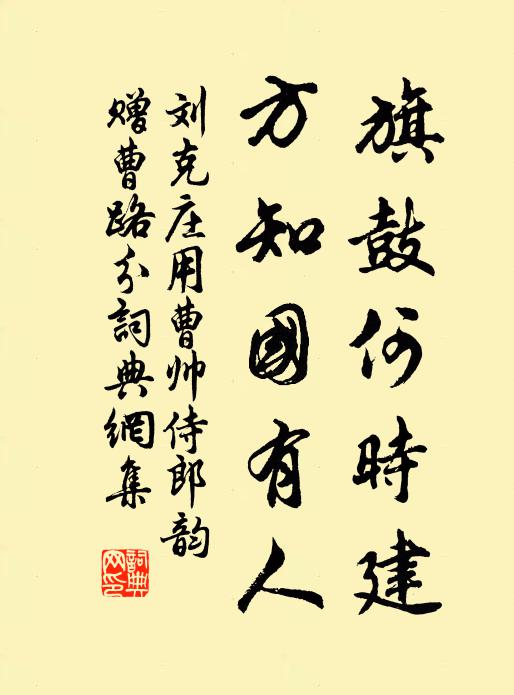 旗鼓何時建
方知國有人
刘克庄用曹帅侍郎韵
赠曹路分詞典網集
詞典網印